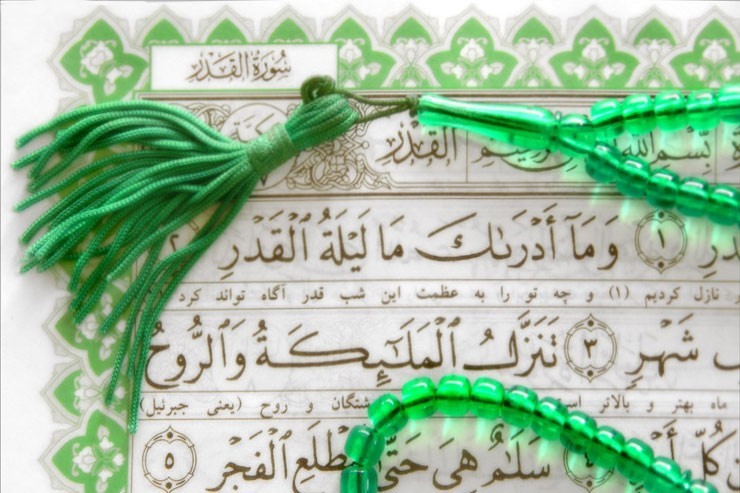 سُورَةُ القَدۡرِ
بِسۡمِ ٱللَّهِ
القَدۡرِ
دۡرِ ١ وَمَآ أَدۡرَىٰكَ مَا لَيۡلَةُ ٱلۡقَدۡرِ ٢
نازل کردیم (۱) و چه تو را به عظمت این شب قدر آگاه تواند کرد
شَهۡرٖ ٣ تَنَزَّلُ ٱلۡمَلَٰٓئِكَةُ وَٱلرُّوحُ
ماه بهتر و بالاتر و روح (یعنی جبرئیل)
كُلِّ أَمۡ ٤ سَلَٰمٌ هِيَ حَتَّىٰ مَطۡلَعِ ٱلۡفَجۡرِ ٥